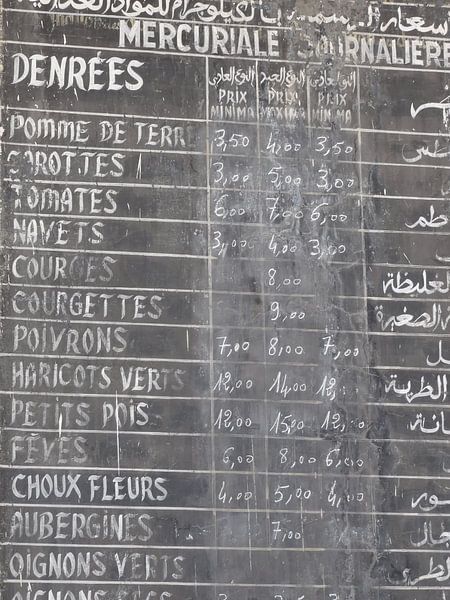 أسعار
MERCURIALE JOURNALIÈRE
DENRÉES
النوع العادي النوع الجيد النوع العادي
PRIX PRIX PRIX
MINIMA MAXIMA MINIMA
POMME DE TERRE 3,50 4,00 3,50
CAROTTES 3,00 5,00 3,00
TOMATES 6,00 7,00 6,00
NAVETS 3,00 4,00 3,00
COURGES 8,00 الغليظة
COURGETTES 9,00 الصغيرة
POIVRONS 7,00 8,00 7,00
HARICOTS VERTS 12,00 14,00 12,
PETITS POIS 12,00 15,00 12,00
FÈVES 6,00 8,00 6,00
CHOUX FLEURS 4,00 5,00 4,00
AUBERGINES 7,00
OIGNONS VERTS
OIGNONS